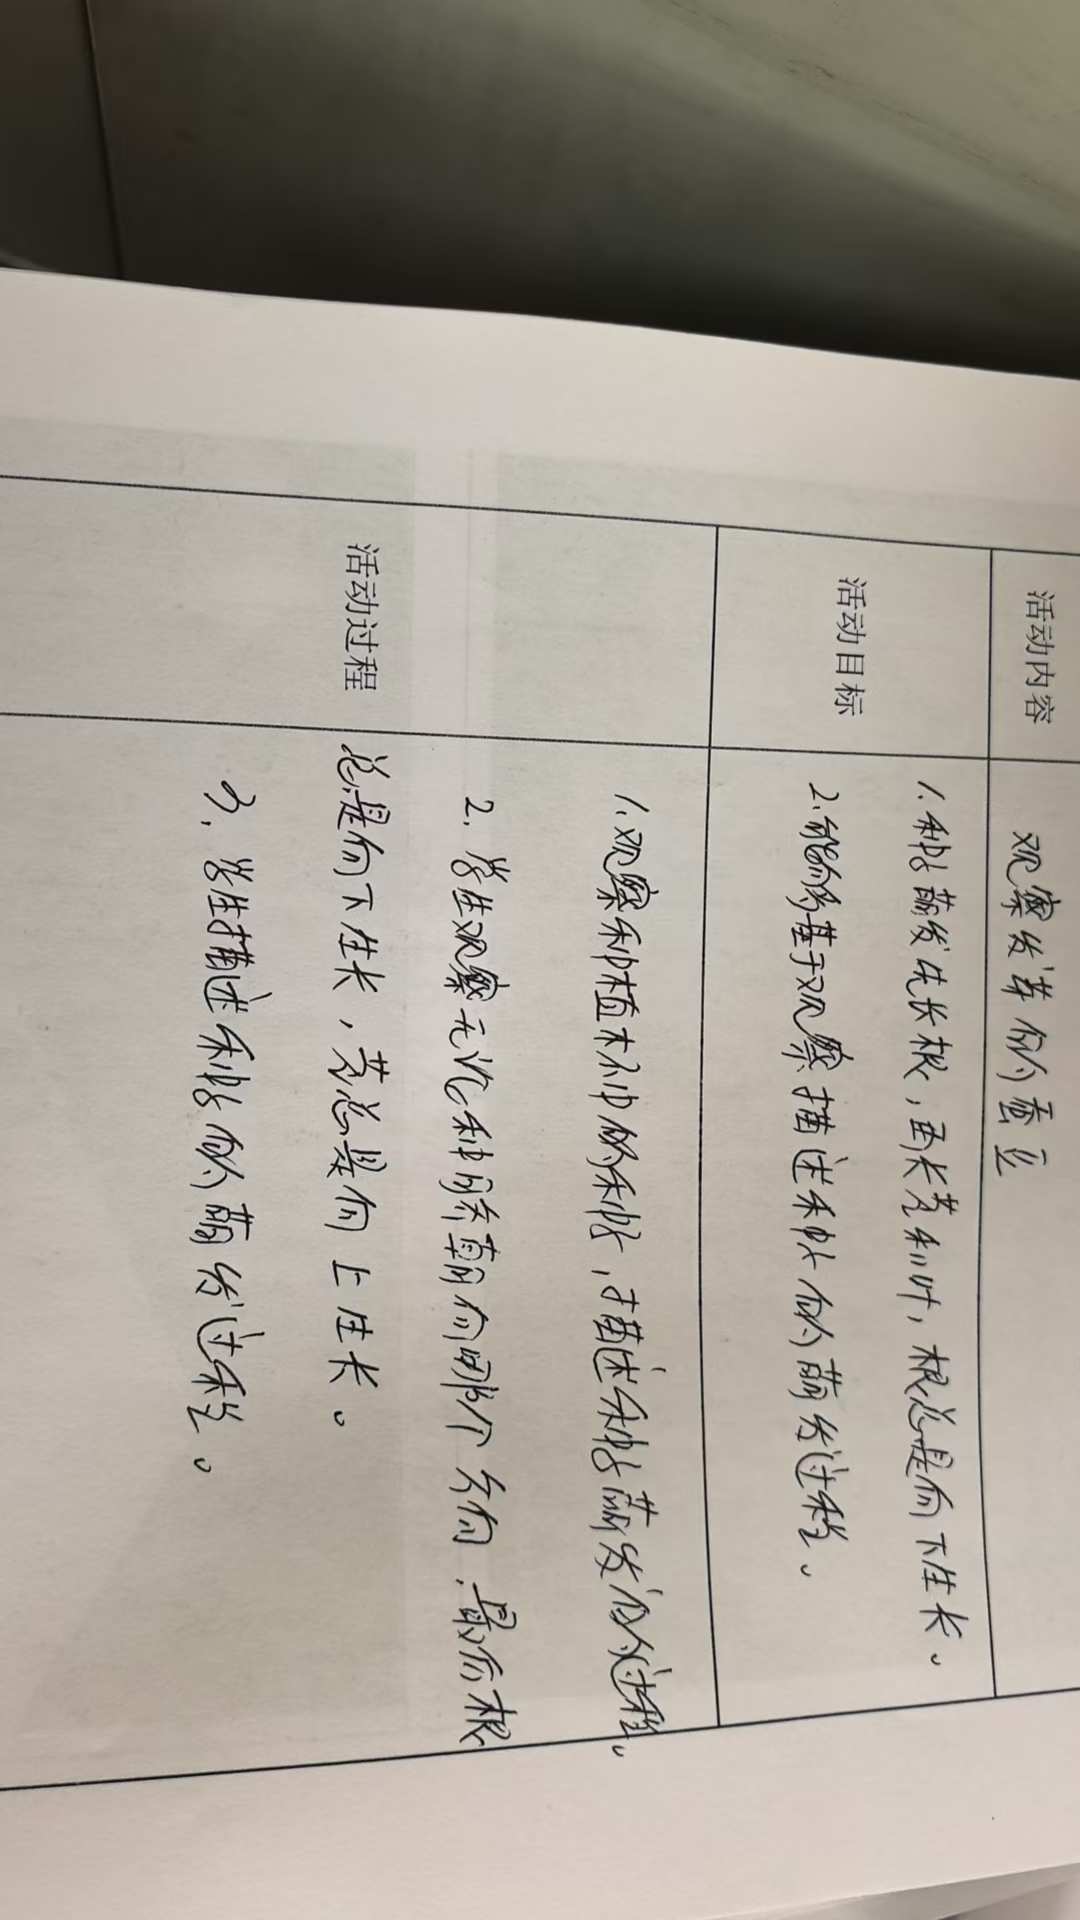 活动内容 观察发芽的蚕豆
活动目标 1.种子萌发先长根，再长茎和叶，根总是向下生长。
2.能够基于观察描述种子的萌发过程。
活动过程 1.观察种植杯中的种子，描述种子萌发的过程。
2.学生观察无论种脐朝向哪个方向，最后根
总是向下生长，茎总是向上生长。
3.学生描述种子的萌发过程。